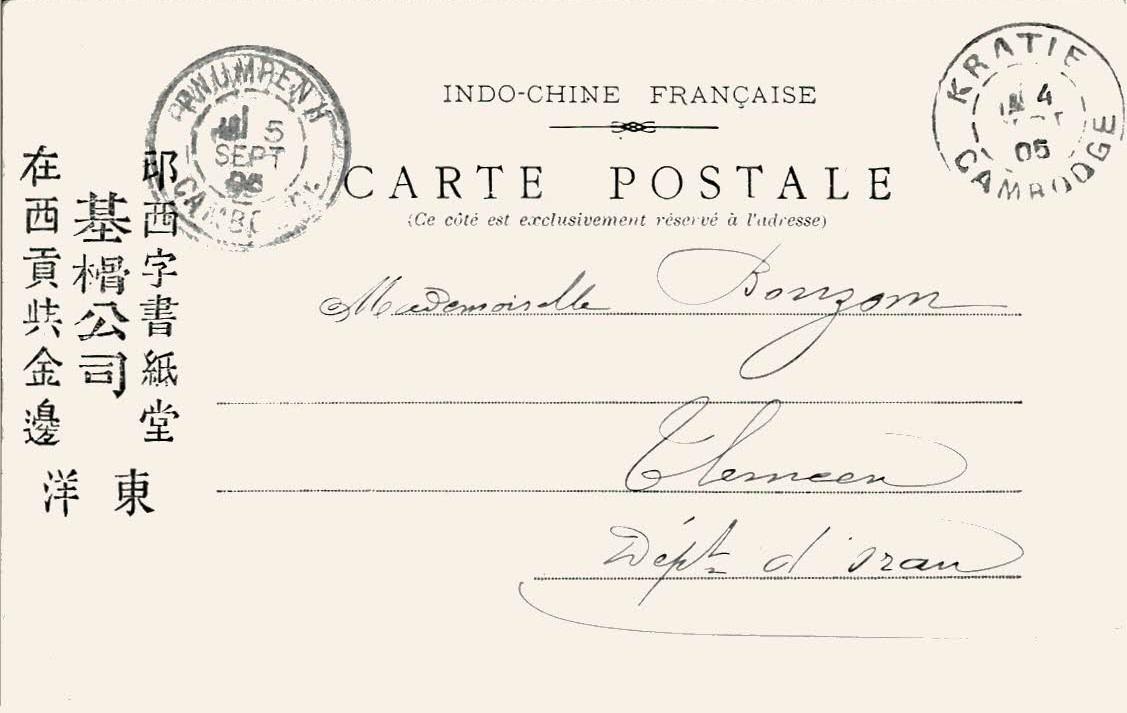 INDO-CHINE FRANÇAISE
CARTE POSTALE
(Ce côté est exclusivement réservé à l'adresse)
PNUMPENH
5
SEPT
05
CAMBODGE
KRATIE
4
SEPT
05
CAMBODGE
Mademoiselle Bonzom
Tlemcen
Dépt d'oran
印西字書紙堂
基榾公司
在西貢共金邊
東洋